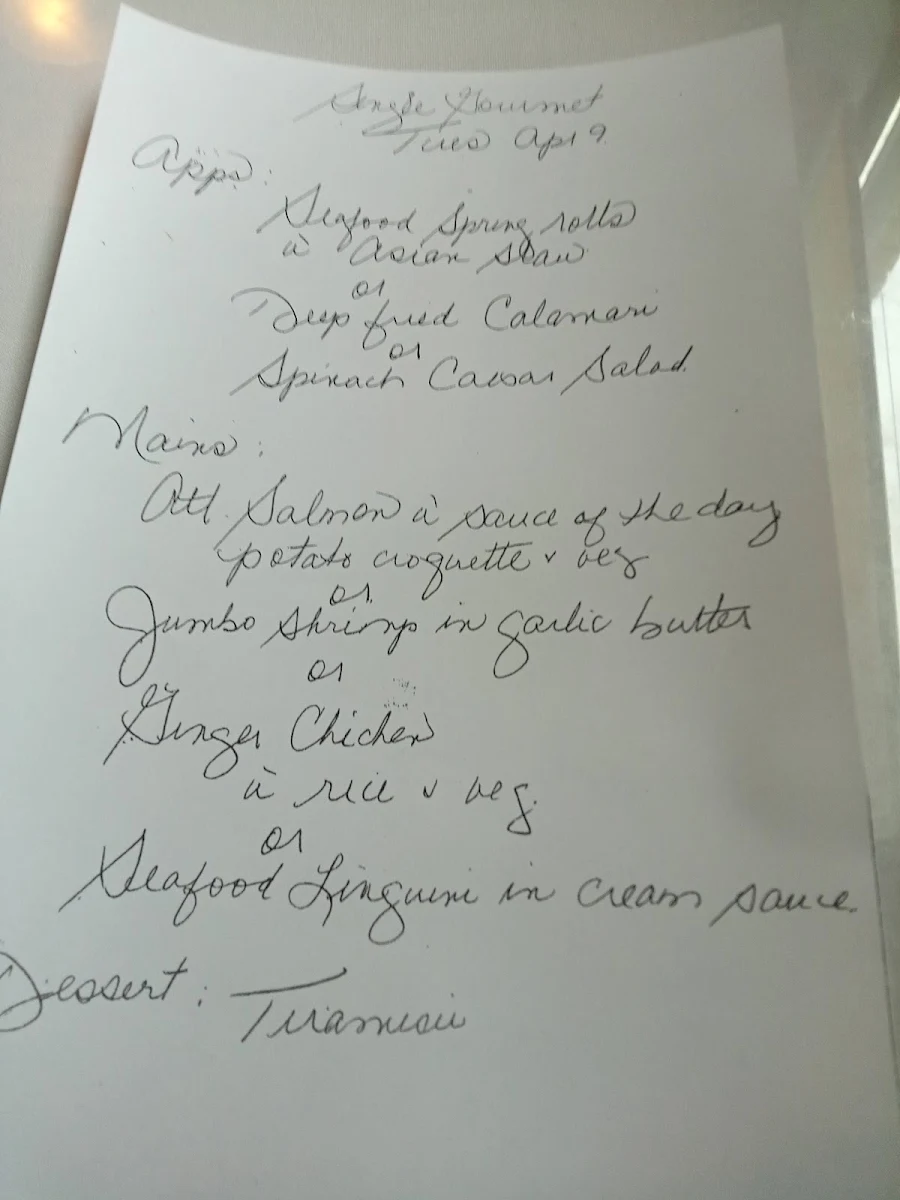 Single Gourmet
Tues Apr 9
Apps:
Seafood Spring rolls
à Asian slaw
or
Deep fried Calamari
or
Spinach Caesar Salad.
Mains:
Atl. Salmon à sauce of the day
potato croquette & veg
or
Jumbo Shrimp in garlic butter
or
Ginger Chicken
à rice & veg.
or
Seafood Linguini in cream sauce.
Dessert: Tiramisu